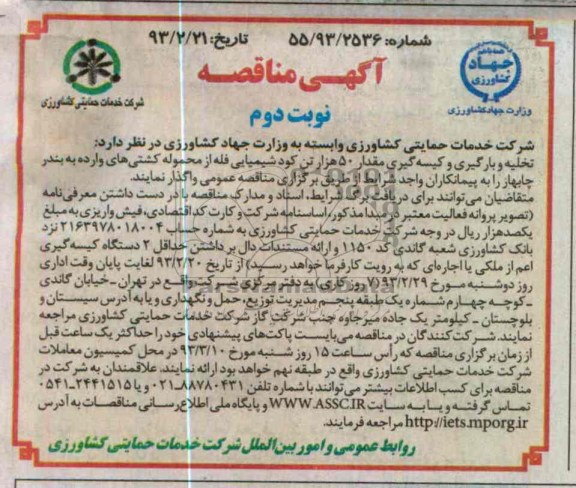 شماره: ۵۵/۹۳/۲۵۳۶ تاریخ: ۹۳/۲/۲۱
جهاد کشاورزی
وزارت جهادکشاورزی
آگهی مناقصه
شرکت خدمات حمایتی کشاورزی
نوبت دوم
شرکت خدمات حمایتی کشاورزی وابسته به وزارت جهاد کشاورزی در نظر دارد:
تخلیه و بارگیری و کیسه گیری مقدار ۵۰ هزار تن کود شیمیایی فله از محموله کشتی‌های وارده به بندر
چابهار را به پیمانکاران واجد شرایط از طریق برگزاری مناقصه عمومی واگذار نمایند.
متقاضیان می‌توانند برای دریافت برگ شرایط، اسناد و مدارک مناقصه با در دست داشتن معرفی‌نامه
(تصویر پروانه فعالیت معتبر در مبدا مذکور، اساسنامه شرکت و کارت کد اقتصادی، فیش واریزی به مبلغ
یکصدهزار ریال در وجه شرکت خدمات حمایتی کشاورزی به شماره حساب ۲۱۶۳۹۷۸۰۱۸۰۰۴ نزد
بانک کشاورزی شعبه گاندی کد ۱۱۵۰ و ارائه مستندات دال بر داشتن حداقل ۲ دستگاه کیسه‌گیری
اعم از ملکی یا اجاره‌ای که به رویت کارفرما خواهد رسید) از تاریخ ۹۳/۲/۲۰ لغایت پایان وقت اداری
روز دوشنبه مورخ ۹۳/۲/۲۹ (۷ روز کاری) به دفتر مرکزی شرکت واقع در تهران - خیابان گاندی
- کوچه چهارم شماره یک طبقه پنجم مدیریت توزیع، حمل و نگهداری و یا به آدرس سیستان و
بلوچستان - کیلومتر یک جاده میرجاوه جنب شرکت گاز شرکت خدمات حمایتی کشاورزی مراجعه
نمایند. شرکت کنندگان در مناقصه می‌بایست پاکت‌های پیشنهادی خود را حداکثر یک ساعت قبل
از زمان برگزاری مناقصه که رأس ساعت ۱۵ روز شنبه مورخ ۹۳/۳/۱۰ در محل کمیسیون معاملات
شرکت خدمات حمایتی کشاورزی واقع در طبقه نهم خواهد بود ارائه نمایند. علاقمندان به شرکت در
مناقصه برای کسب اطلاعات بیشتر می‌توانند با شماره تلفن ۸۸۷۸۰۴۳۱-۰۲۱ و یا ۲۴۴۱۵۱۵-۰۵۴۱
تماس گرفته و یا به سایت WWW.ASSC.IR و پایگاه ملی اطلاع رسانی مناقصات به آدرس
http://iets.mporg.ir مراجعه فرمایند.
روابط عمومی و امور بین الملل شرکت خدمات حمایتی کشاورزی